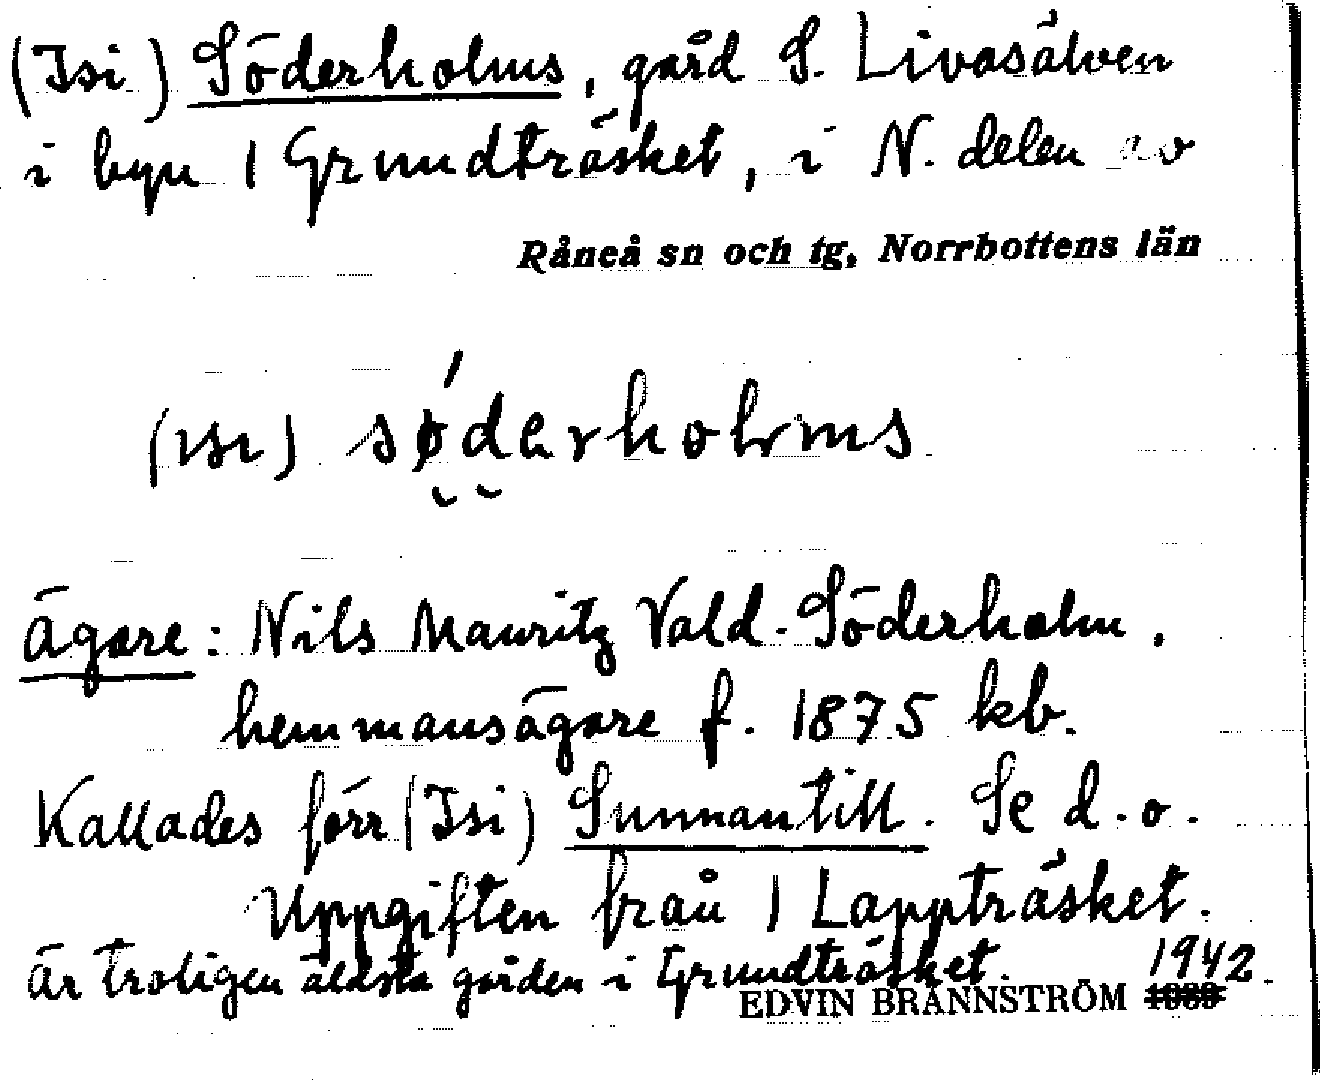 (Isi) Söderholms, gård S. Livasälven
i byn 1 Grundträsket, i N. delen av
Råneå sn och tg, Norrbottens län
(ısı) sǿdərholms
Ägare: Nils Mauritz Vald. Söderholm,
hemmansägare f. 1875 kb.
Kallades förr (Isi) Sunnantill. Se d.o.
Uppgiften från 1 Lappträsket.
Är troligen äldsta gården i Grundträsket.
1942
EDVIN BRÄNNSTRÖM